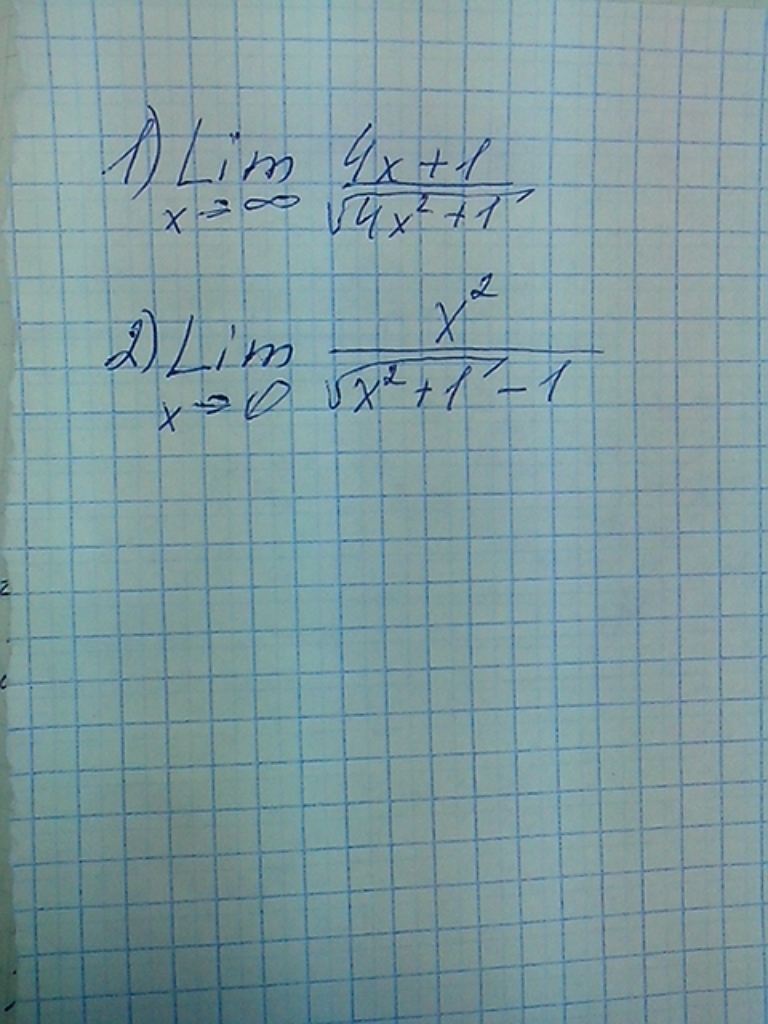 1) Lim 4x+1
x→∞ √4x²+1
2) Lim x²
x→0 √x²+1 - 1